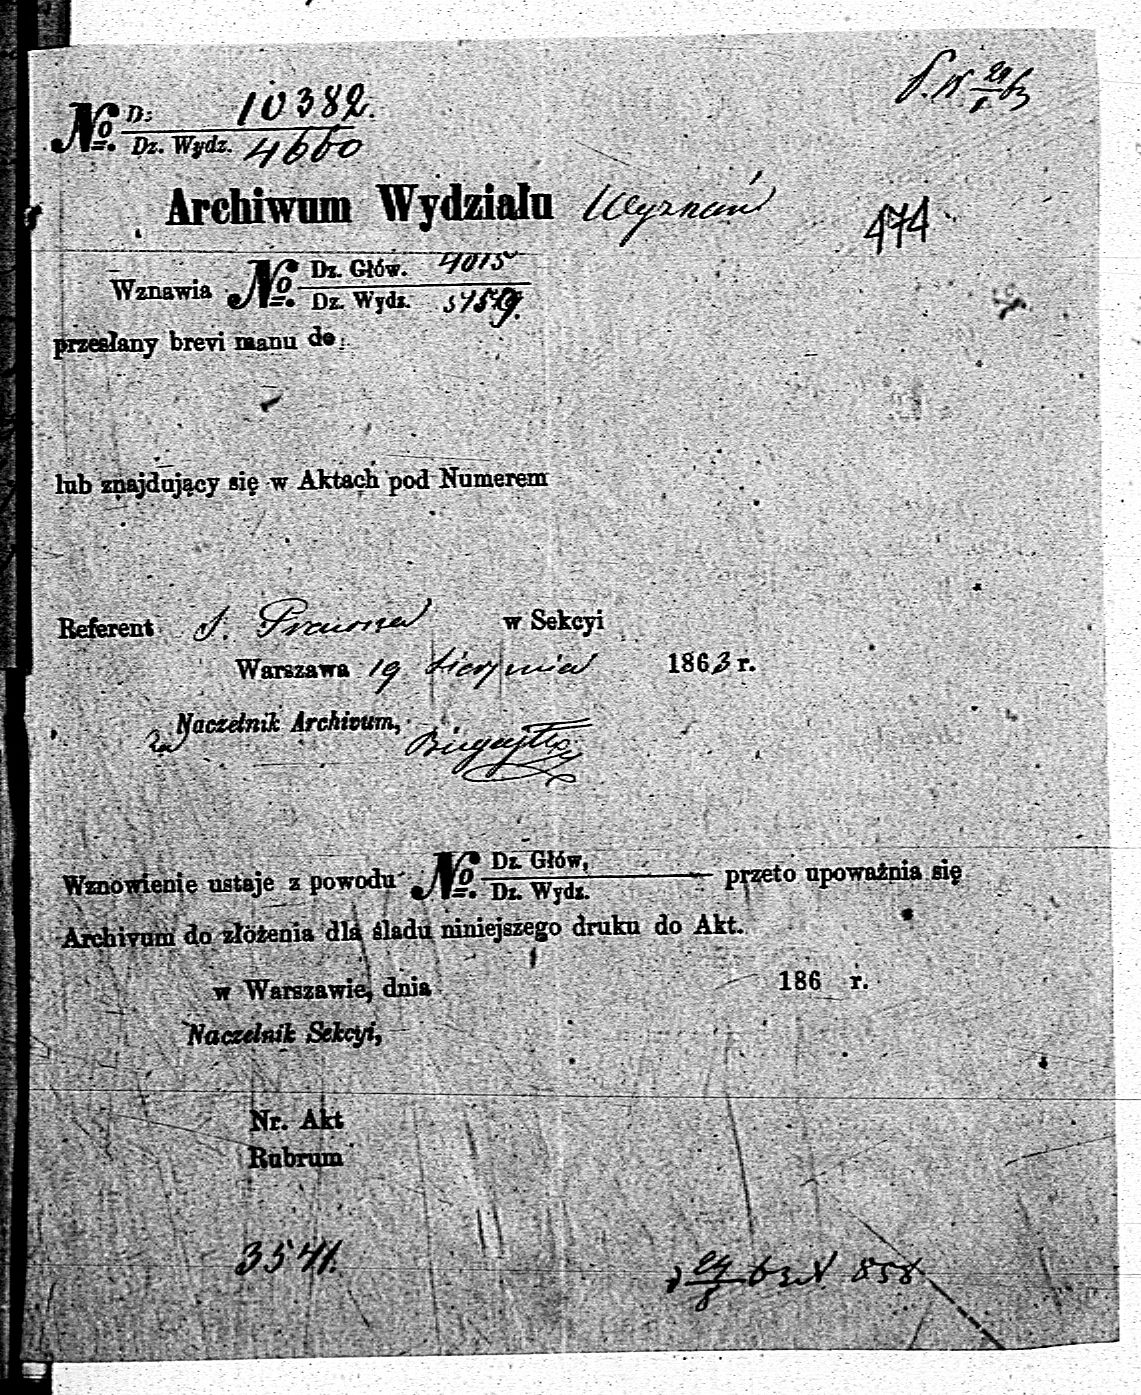 No D: 10382.
Dz. Wydz. 4660
Archiwum Wydziału Wyznań
474
Wznawia No Dz. Głów. 4015
Dz. Wydz.
przesłany brevi manu do:
lub znajdujący się w Aktach pod Numerem
Referent J. w Sekcyi
Warszawa 19 sierpnia 1863 r.
za Naczelnik Archivum,
Wznowienie ustaje z powodu No Dz. Głów, przeto upoważnia się
Dz. Wydz.
Archivum do złożenia dla śladu niniejszego druku do Akt.
w Warszawie, dnia 186 r.
Naczelnik Sekcyi,
Nr. Akt
Rubrum
3541.
858